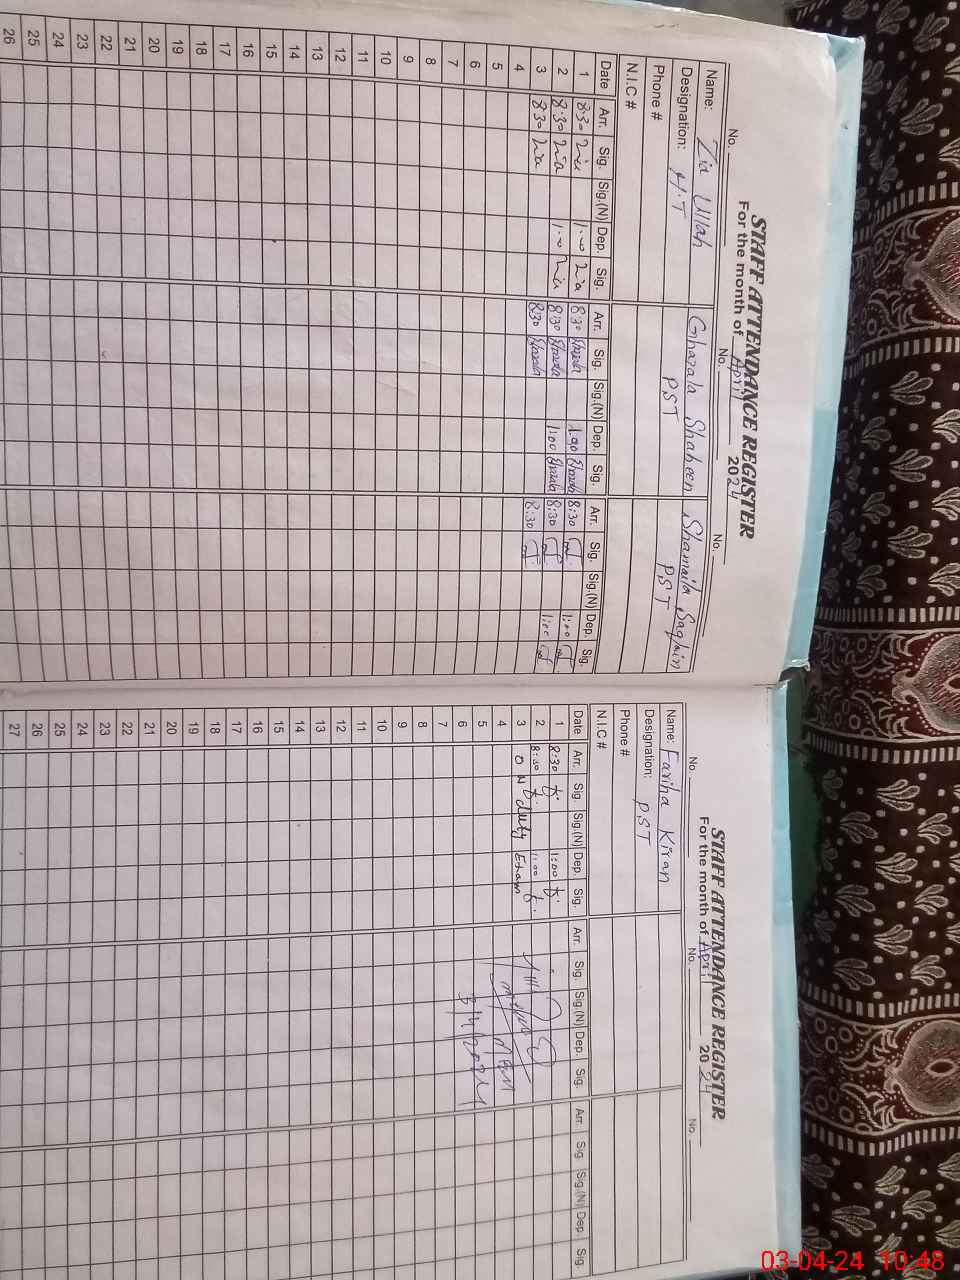 STAFF ATTENDANCE REGISTER
For the month of April 2024
No. No. No.
Name: Zia Ullah Ghazala Shaheen Shamaila Saqlain
Designation: H.T PST PST
Phone #
N.I.C #
Date Arr. Sig. Sig.(N) Dep. Sig. Arr. Sig. Sig.(N) Dep. Sig. Arr. Sig. Sig.(N) Dep. Sig.
1 830 Zia 1:00 Zia 8:30 Ghazala 1:00 Ghazala 8:30 1:00
2 8:30 Zia 1:00 Zia 8:30 Ghazala 1:00 Ghazala 8:30 1:00
3 830 Zia 8:30 Ghazala 8:30
4
5
6
7
8
9
10
11
12
13
14
15
16
17
18
19
20
21
22
23
24
25
26
STAFF ATTENDANCE REGISTER
For the month of April 2024
No. No. No.
Name: Fariha Kiran
Designation: PST
Phone #
N.I.C #
Date Arr. Sig. Sig.(N) Dep. Sig. Arr. Sig. Sig.(N) Dep. Sig. Arr. Sig. Sig.(N) Dep. Sig.
1 8:30 1:00
2 8:30 1:00
3 ON duty Exam
4
5
6 3/4/2024
7
8
9
10
11
12
13
14
15
16
17
18
19
20
21
22
23
24
25
26
27
03-04-24 10:48